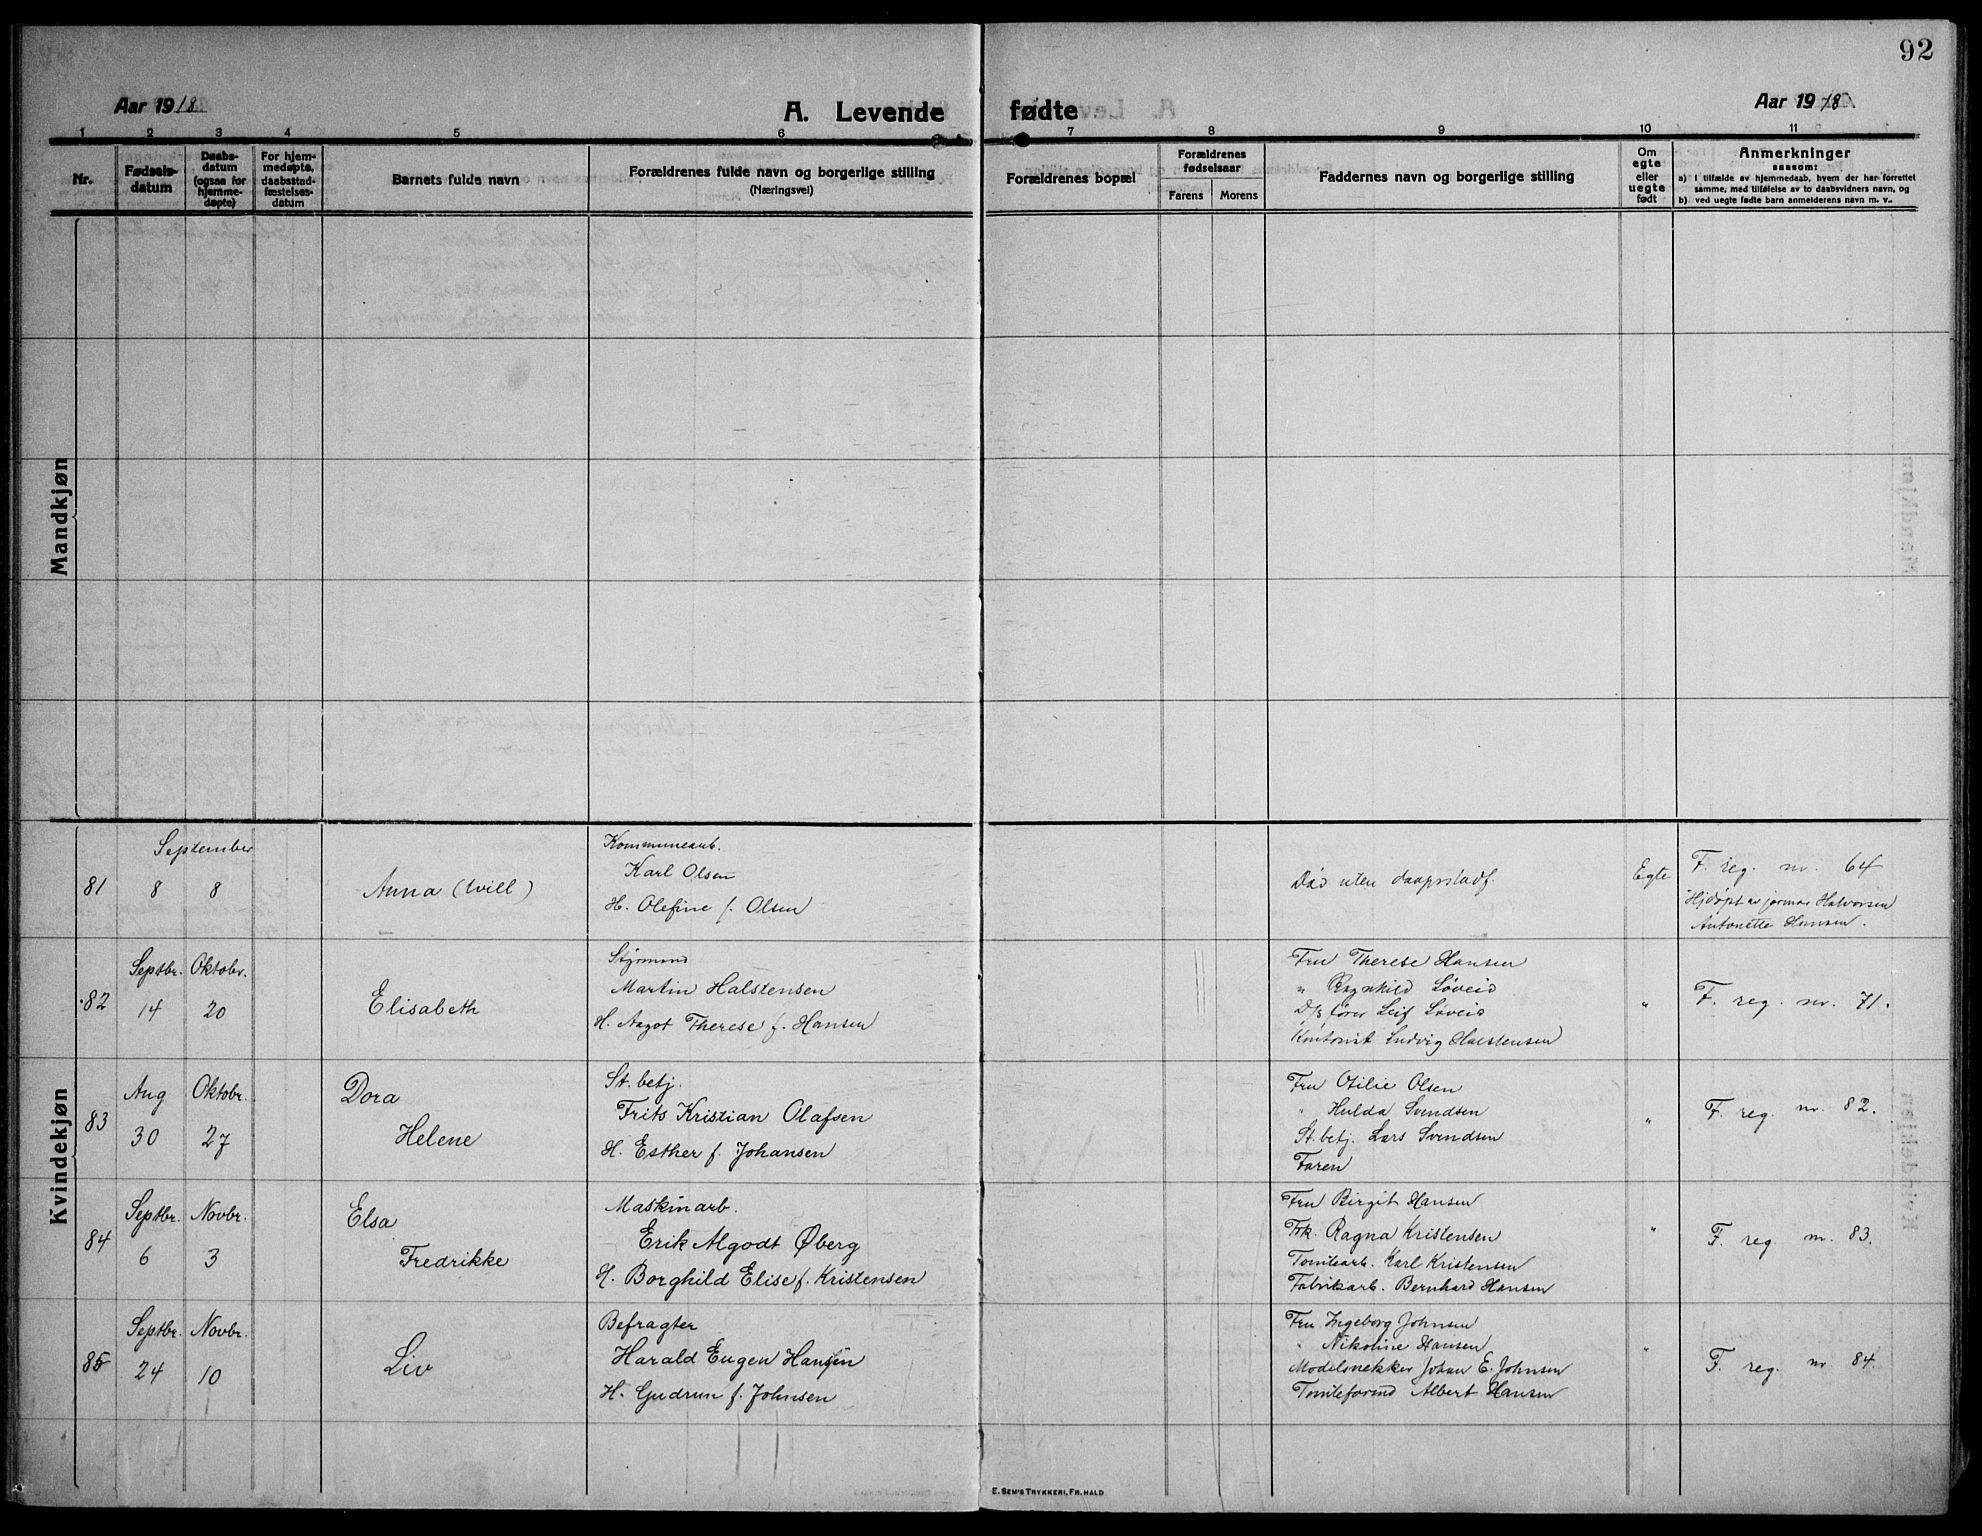 92
Aar 1918
A. Levende fødte
Aar 1918.
1 2 3 4 5 6 7 8 9 10 11
Nr.
Fødsels-
datum
Daabs-
datum
(ogsaa for
hjemme-
døpte)
For hjem-
medøpte,
daabsstad-
fæstelses-
datum
Barnets fulde navn
Forældrenes fulde navn og borgerlige stilling
(Næringsvei)
Forældrenes bopæl
Forældrenes
fødselsaar
Farens Morens
Faddernes navn og borgerlige stilling
Om
egte
eller
uegte
født
Anmerkninger
saasom:
a) I tilfælde av hjemmedaab, hvem der har forrettet
samme, med tilføielse av to daabsvidners navn, og
b) ved uegte fødte barn anmelderens navn m. v.
Mandkjøn
Kvindekjøn
81
September
8 8
Anna (tvill)
Kommunearb.
Karl Olsen
H. Olefine f. Olsen
Død uten daapsstadf.
Egte
F. reg. nr. 64
Hjdøpt av jormor Halvorsen
Antonette Hansen.
82
Septbr. Oktobr.
14 20
Elisabeth
Styrmand
Martin Halstensen
H. Aagot Therese f. Hansen
Fru Therese Hansen
" Ragnhild Løveid
D/s fører Leif Løveid
Kontorist Ludvig Halstensen
"
F. reg. nr. 71.
83
Aug Oktobr.
30 27
Dora
Helene
St. betj.
Frits Kristian Olafsen
H. Esther f. Johansen
Fru Otilie Olsen
" Hulda Svendsen
St. betj. Lars Svendsen
Faren
"
F. reg. nr. 82.
84
Septbr. Novbr.
6 3
Elsa
Fredrikke
Maskinarb.
Erik Algodt Øberg
H. Borghild Elise f. Kristensen
Fru Birgit Hansen
Frk. Ragna Kristensen
Tomtearb. Karl Kristensen
Fabrikarb. Bernhard Hansen
"
F. reg. nr. 83.
85
Septbr. Novbr.
24 10
Liv
Befragter
Harald Eugen Hansen
H. Gudrun f. Johnsen
Fru Ingeborg Johnsen
" Nikoline Hansen
Modelsnekker Johan E. Johnsen
Tomteformd Albert Hansen
"
F. reg. nr. 84.
E. SEM'S TRYKKERI, FR.HALD